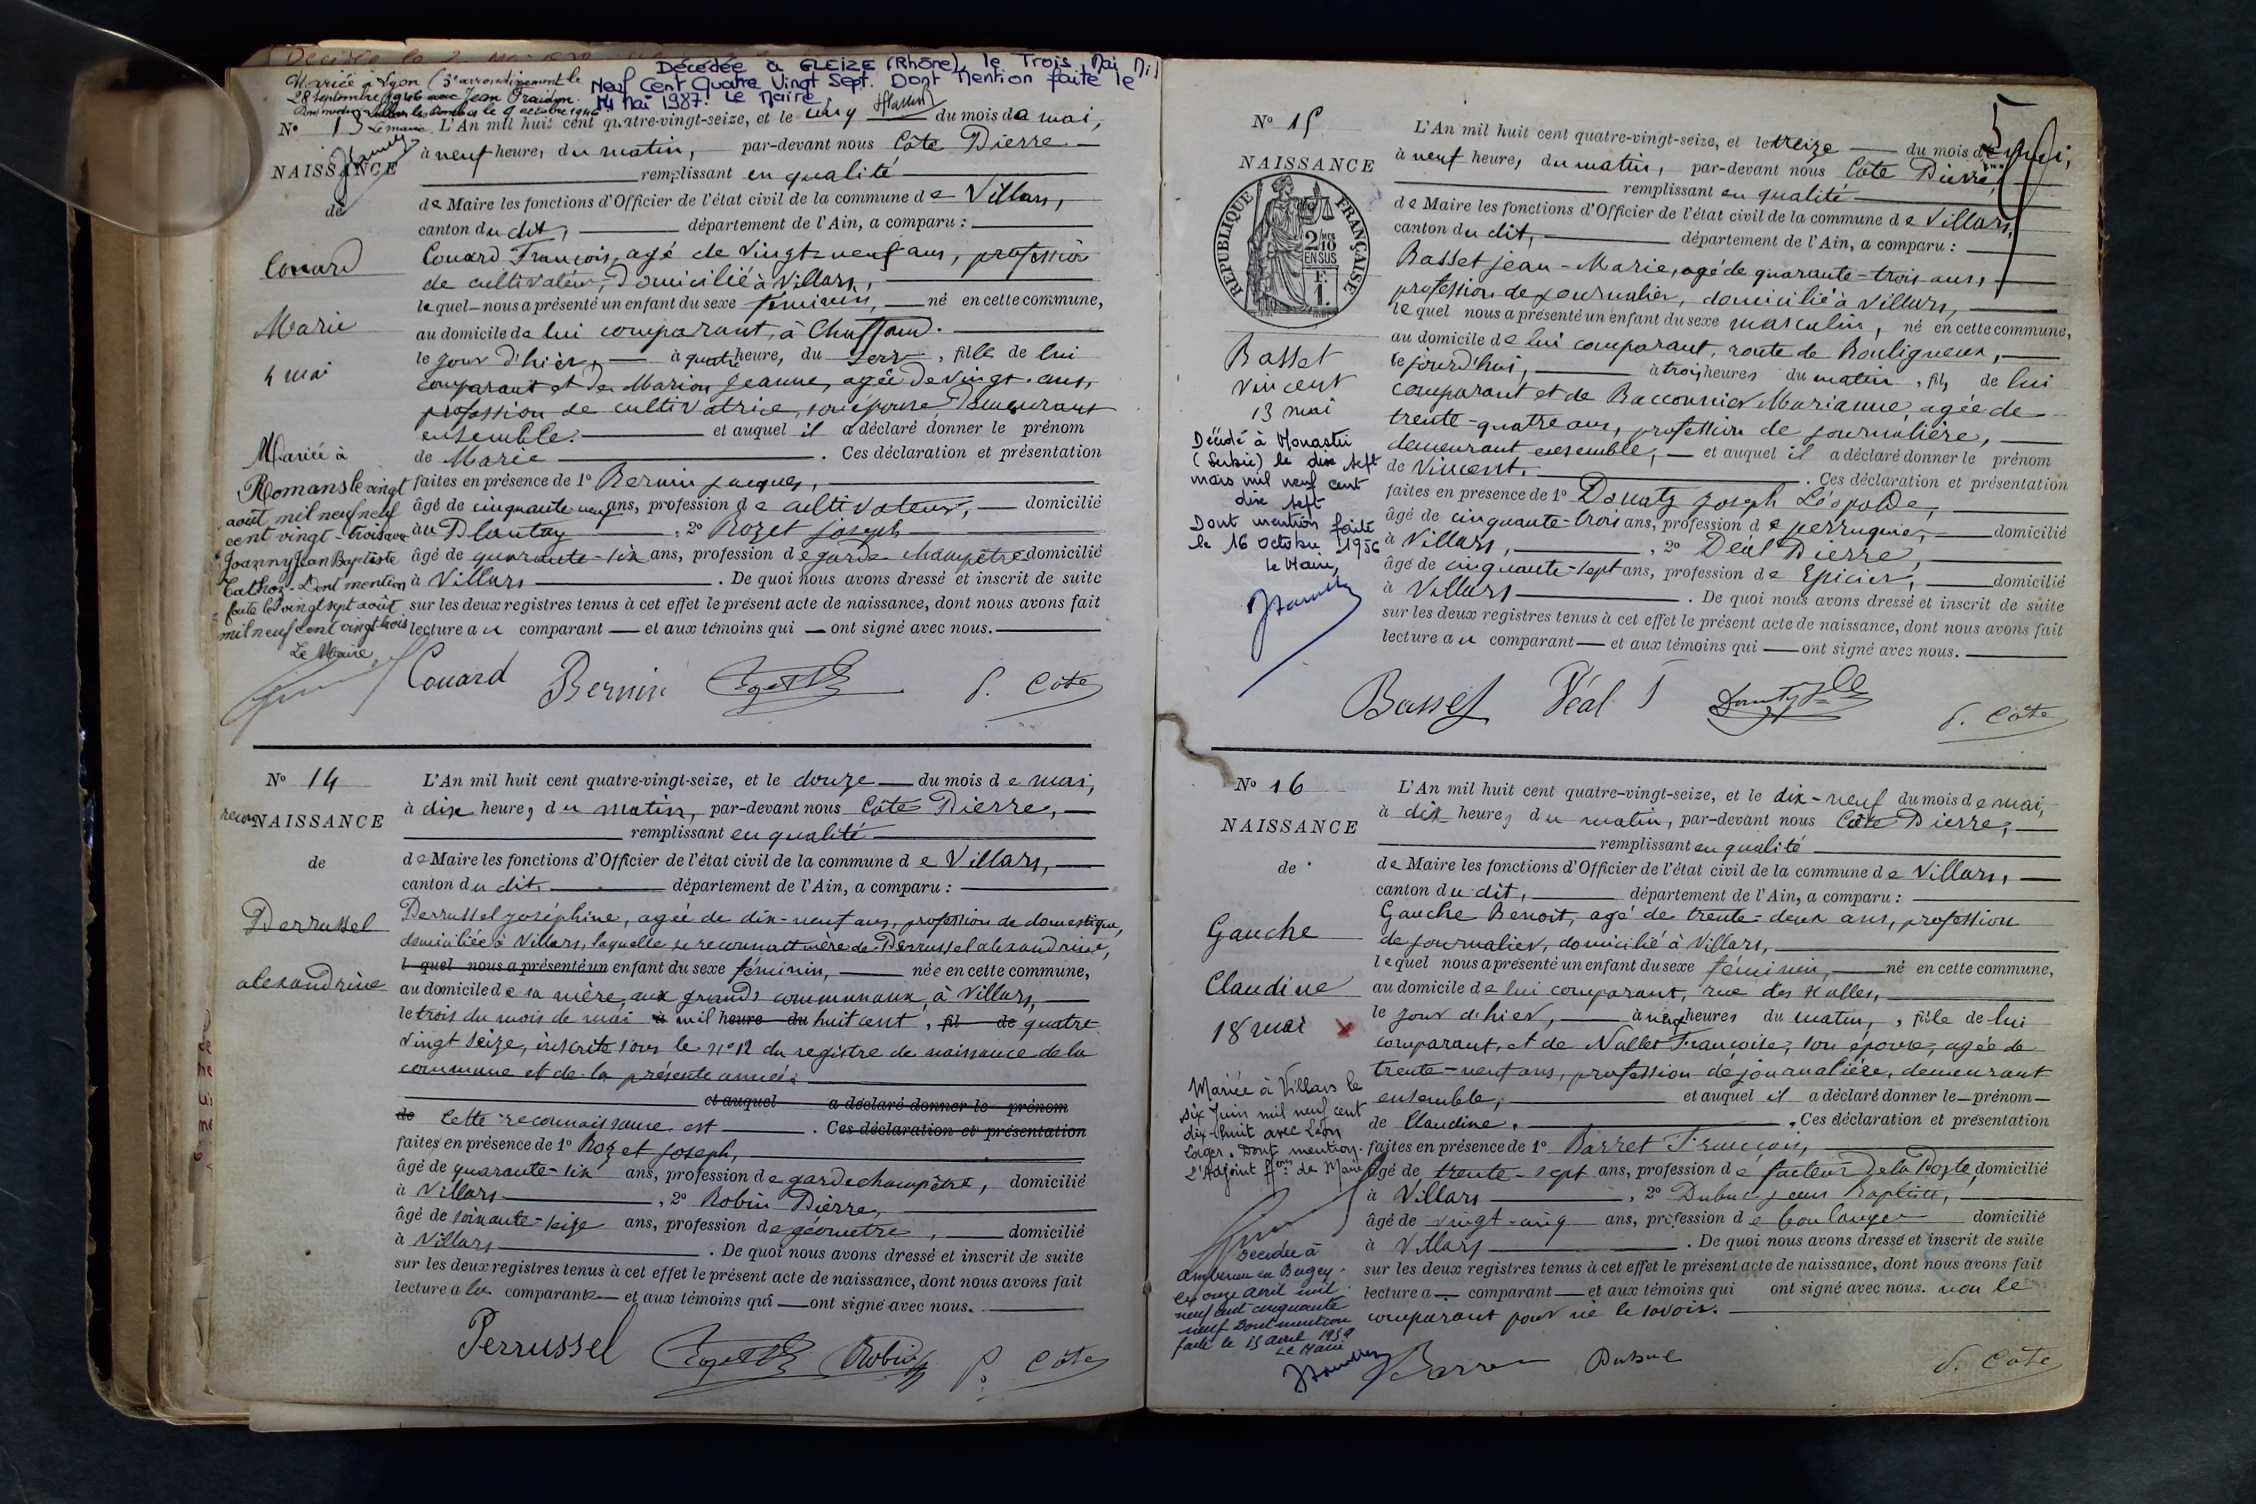 Mariée à Lyon (3e arrondissement le
28 Septembre 1946 avec Jean
le 9 octobre 1946
Le maire
Décédée à GLEIZE (Rhône), le Trois Mai Mil
Neuf Cent Quatre Vingt Sept. Dont Mention faite le
14 Mai 1987. Le Maire,
No 13
NAISSANCE
de
Couard
Marie
4 mai
Mariée à
Romans le vingt
août mil neuf neuf
cent vingt-trois avec
Joanny Jean Baptiste
Cathoz. Dont mention
faite le vingt sept août
mil neuf cent vingt trois
Le Maire
L'An mil huit cent quatre-vingt-seize, et le cinq du mois de mai,
à neuf heure, du matin, par-devant nous Côte Pierre
remplissant en qualité
de Maire les fonctions d'Officier de l'état civil de la commune de Villars,
canton du dit, département de l'Ain, a comparu :
Couard François, agé de vingt-neuf ans, profession
de cultivateur, domicilié à Villars,
lequel nous a présenté un enfant du sexe féminin, né en cette commune,
au domicile de lui comparant, à
le jour d'hier, à quatre heure, du soir, fille de lui
comparant et de Marion Jeanne, agée de vingt ans,
profession de cultivatrice, son épouse demeurant
ensemble. et auquel il a déclaré donner le prénom
de Marie . Ces déclaration et présentation
faites en présence de 1o Bernin Jacques,
âgé de cinquante neuf ans, profession de cultivateur, domicilié
au Plantay, 2o Rozet Joseph
âgé de quarante-six ans, profession de garde champêtre domicilié
à Villars . De quoi nous avons dressé et inscrit de suite
sur les deux registres tenus à cet effet le présent acte de naissance, dont nous avons fait
lecture au comparant et aux témoins qui ont signé avec nous.
Couard Bernin Rozet P. Côte
No 14
recon
NAISSANCE
de
Perrussel
alexandrine
L'An mil huit cent quatre-vingt-seize, et le douze du mois de mai,
à dix heure, du matin, par-devant nous Côte Pierre,
remplissant en qualité
de Maire les fonctions d'Officier de l'état civil de la commune de Villars,
canton du dit, département de l'Ain, a comparu :
Perrussel Joséphine, agée de dix-neuf ans, profession de domestique,
domiciliée à Villars, laquelle se reconnait mère de Perrussel alexandrine,
l quel nous a présenté un enfant du sexe féminin, née en cette commune,
au domicile de sa mère, aux grands communaux, à Villars,
le trois du mois de mai à mil heure du huit cent, fil de quatre
vingt seize, inscrite sous le no 12 du registre de naissance de la
commune et de la présente année.
et auquel a déclaré donner le prénom
de Cette reconnaissance est . Ces déclaration et présentation
faites en présence de 1o Rozet Joseph,
âgé de quarante-six ans, profession de garde champêtre, domicilié
à Villars, 2o Robin Pierre,
âgé de soixante-seize ans, profession de géomètre, domicilié
à Villars . De quoi nous avons dressé et inscrit de suite
sur les deux registres tenus à cet effet le présent acte de naissance, dont nous avons fait
lecture a la comparante et aux témoins qui ont signé avec nous.
Perrussel Rozet Robin P. Côte
5
No 15
NAISSANCE
RÉPUBLIQUE FRANÇAISE
2/10 EN SUS
F. 1.
Basset
Vincent
13 mai
Décédé à Monastir
(Serbie) le dix sept
mars mil neuf cent
dix sept
Dont mention faite
le 16 Octobre 1956
Le Maire,
L'An mil huit cent quatre-vingt-seize, et le treize du mois de mai,
à neuf heure, du matin, par-devant nous Côte Pierre,
remplissant en qualité
de Maire les fonctions d'Officier de l'état civil de la commune de Villars,
canton du dit, département de l'Ain, a comparu :
Basset Jean-Marie, agé de quarante-trois ans,
profession de journalier, domicilié à Villars,
lequel nous a présenté un enfant du sexe masculin, né en cette commune,
au domicile de lui comparant, route de Bouligneux,
le jourd'hui, à trois heures du matin, fils de lui
comparant et de Bacconnier Marianne, agée de
trente-quatre ans, profession de journalière,
demeurant ensemble, et auquel il a déclaré donner le prénom
de Vincent. Ces déclaration et présentation
faites en présence de 1o Donaty Joseph Léopold,
âgé de cinquante-trois ans, profession de perruquier, domicilié
à Villars, 2o Déal Pierre,
âgé de cinquante-sept ans, profession de Epicier, domicilié
à Villars . De quoi nous avons dressé et inscrit de suite
sur les deux registres tenus à cet effet le présent acte de naissance, dont nous avons fait
lecture au comparant et aux témoins qui ont signé avec nous.
Basset Déal Donaty P. Côte
No 16
NAISSANCE
de
Gauche
Claudine
18 mai
Mariée à Villars le
six Juin mil neuf cent
dix-huit avec Léon
Loiger. Dont mention.
L'Adjoint ffons de Maire
Décédée à
Ambérieu en Bugey
le onze avril mil
neuf cent cinquante
neuf Dont mention
faite le 15 avril 1959
Le Maire
L'An mil huit cent quatre-vingt-seize, et le dix-neuf du mois de mai,
à dix heure, du matin, par-devant nous Côte Pierre,
remplissant en qualité
de Maire les fonctions d'Officier de l'état civil de la commune de Villars,
canton du dit, département de l'Ain, a comparu :
Gauche Benoit, agé de trente-deux ans, profession
de journalier, domicilié à Villars,
lequel nous a présenté un enfant du sexe féminin, né en cette commune,
au domicile de lui comparant, rue des Halles,
le jour d'hier, à neuf heures du matin, fille de lui
comparant, et de Nallet Françoise, son épouse, agée de
trente-neuf ans, profession de journalière, demeurant
ensemble, et auquel il a déclaré donner le prénom
de Claudine. Ces déclaration et présentation
faites en présence de 1o Barret François,
âgé de trente-sept ans, profession de facteur de la Poste, domicilié
à Villars, 2o Dubuc Jean Baptiste,
âgé de vingt-cinq ans, profession de boulanger domicilié
à Villars . De quoi nous avons dressé et inscrit de suite
sur les deux registres tenus à cet effet le présent acte de naissance, dont nous avons fait
lecture a comparant et aux témoins qui ont signé avec nous. non le
comparant pour ne le savoir.
Barret Dubuc P. Côte